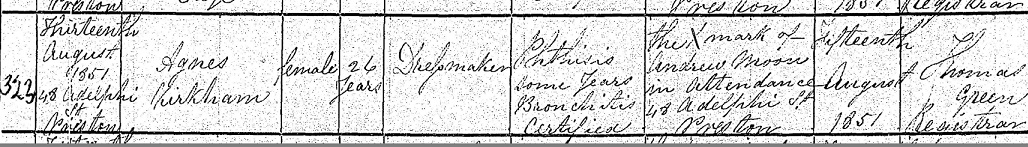 Preston
Preston
1851
Registrar
323
Thirteenth
August
1851
48 Adelphi
St
Preston
Agnes
Kirkham
female
26
Years
Dressmaker
Phthisis
Some Years
Bronchitis
Certified
The X mark of
Andrew Moon
in attendance
48 Adelphi St
Preston
Fifteenth
August
1851
Thomas
Green
Registrar